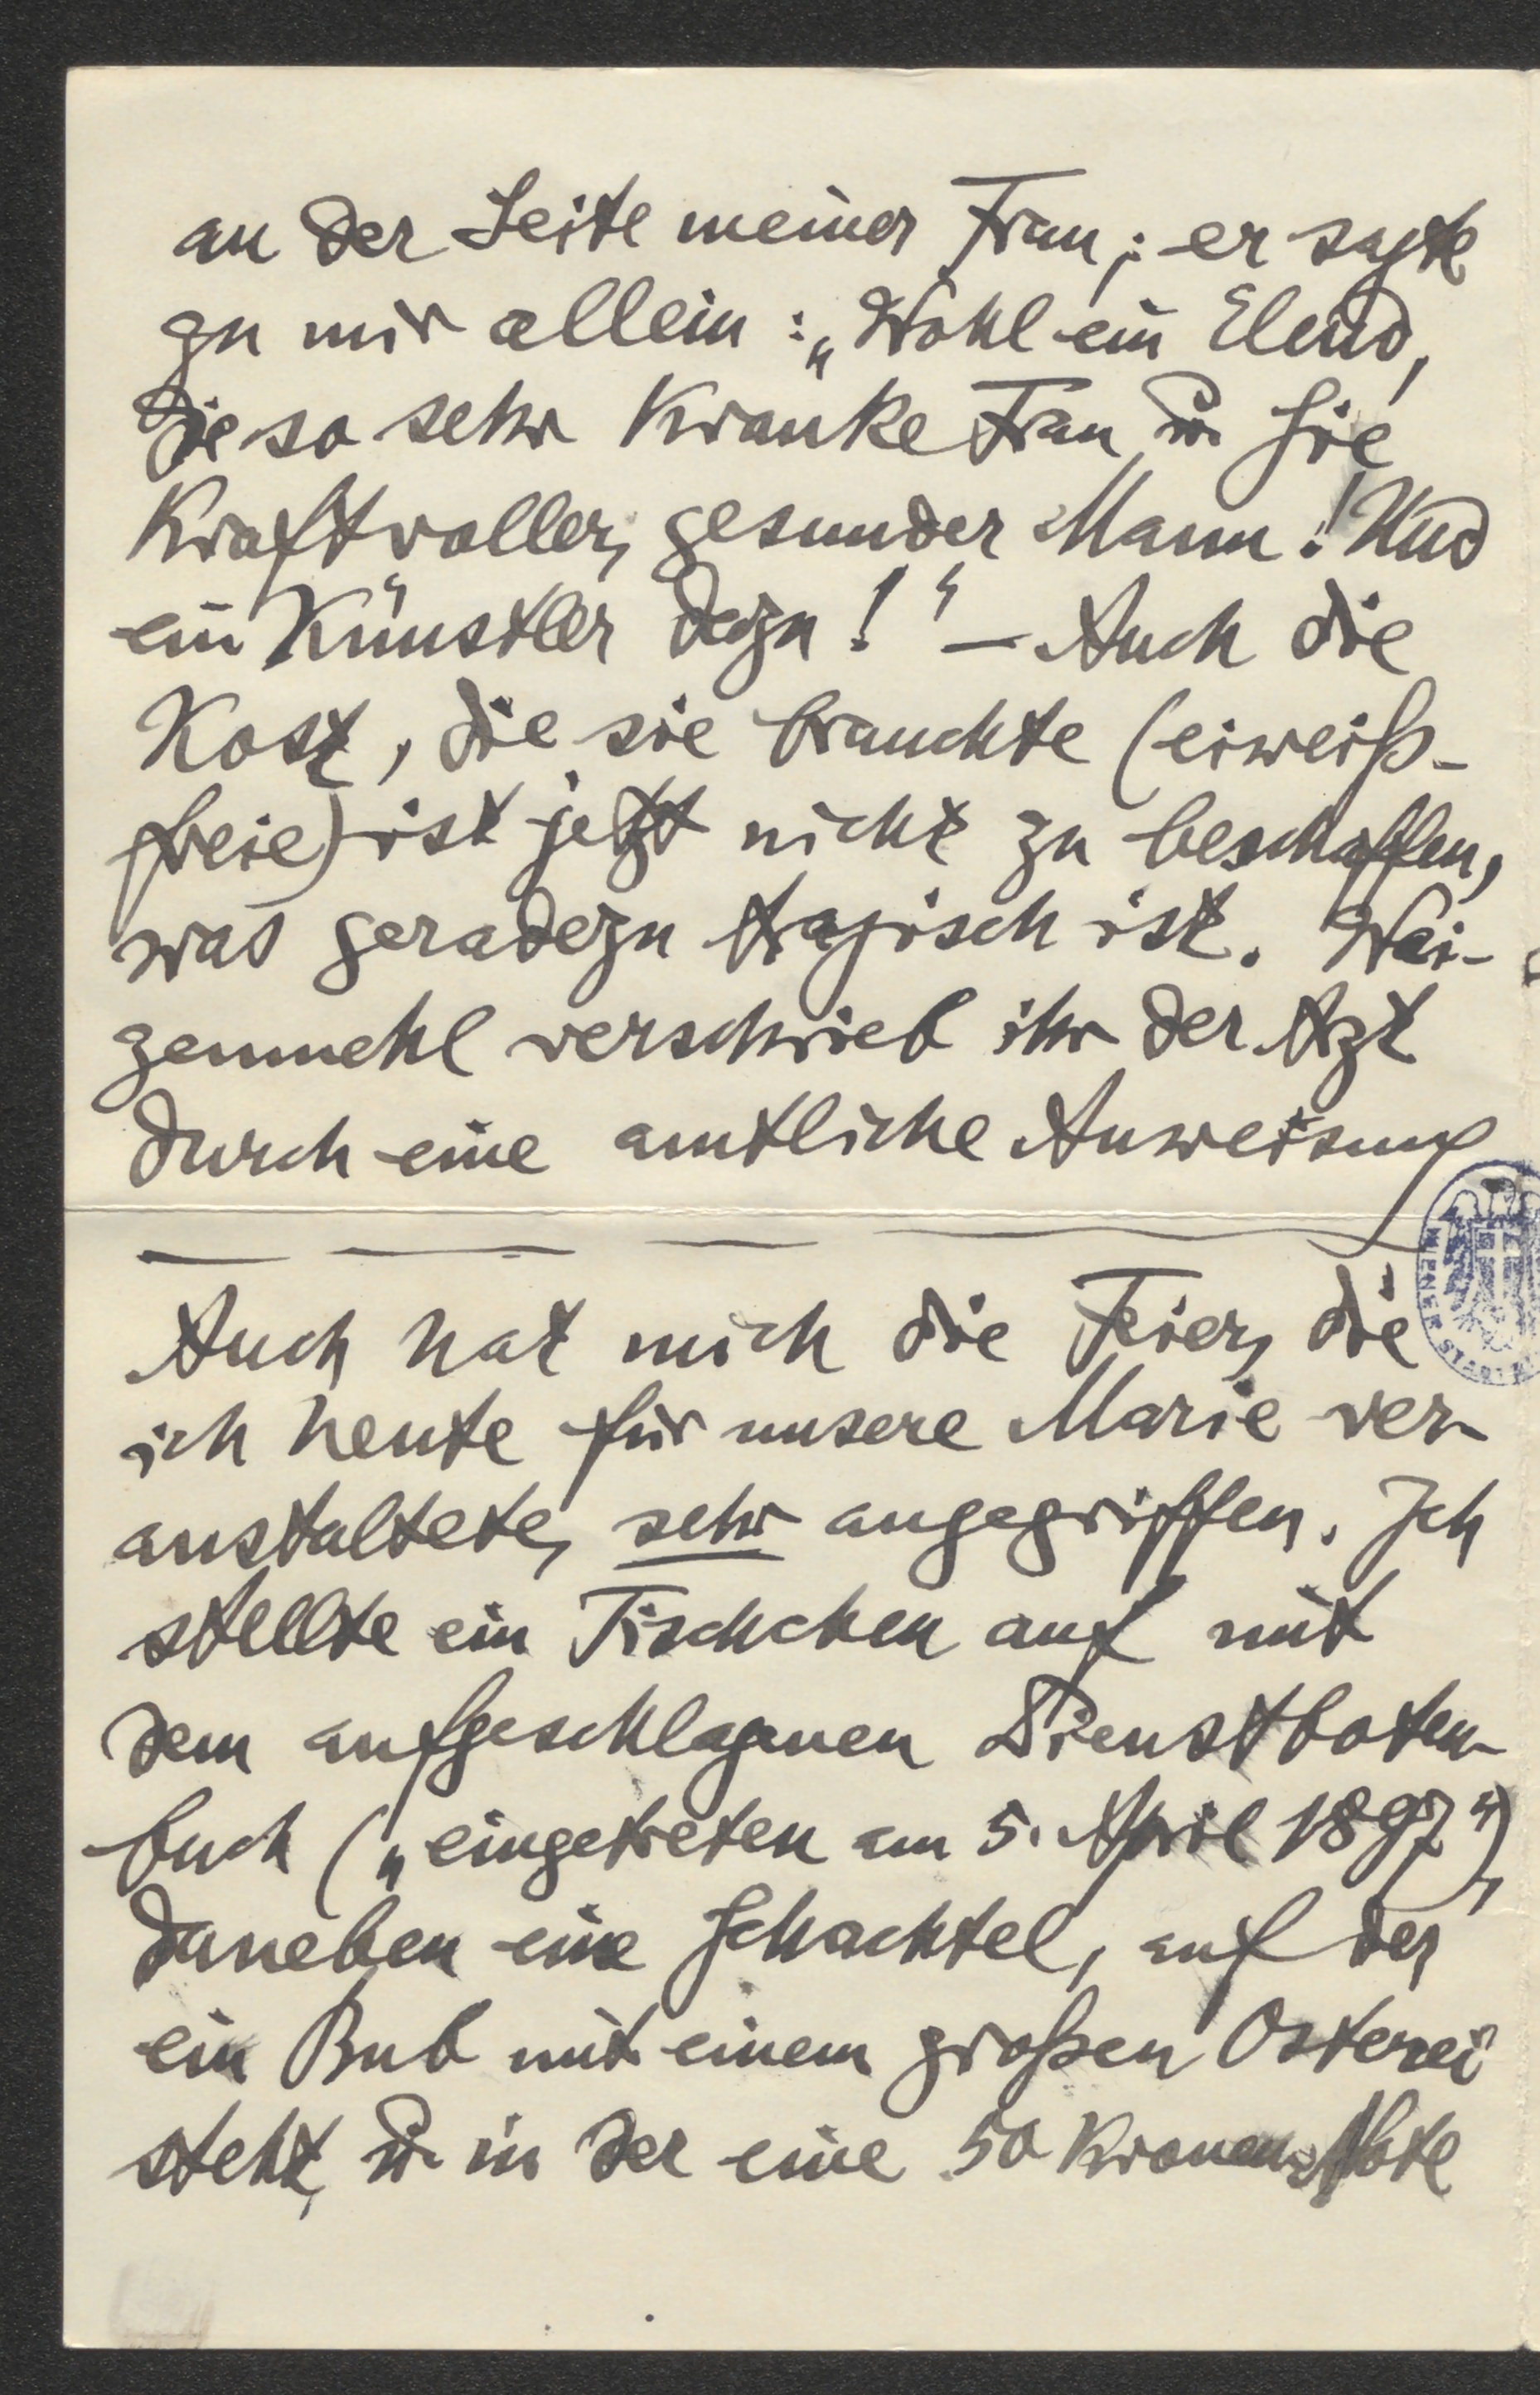 an der Seite meiner Frau; er sagte
zu mir allein: „Wohl ein Elend,
die so sehr kranke Frau u. Sie
kraftvoller, gesunder Mann! Und
ein Künstler dazu!“ – Auch die
Kost, die sie brauchte (eiweiß-
freie) ist jetzt nicht zu beschaffen,
was geradezu tragisch ist. Wei-
zenmehl verschrieb ihr der Arzt
durch eine amtliche Anweisung
Auch hat mich die Feier, die
ich heute für unsere Marie ver-
anstaltete, sehr angegriffen. Ich
stellte ein Tischchen auf mit
dem aufgeschlagenen Dienstboten-
buch („eingetreten am 5. April 1897“),
daneben eine Schachtel, auf der
ein Bub mit einem großen Osterei
steht, u. in der eine 50 Kronen-Note
WIENER STADT